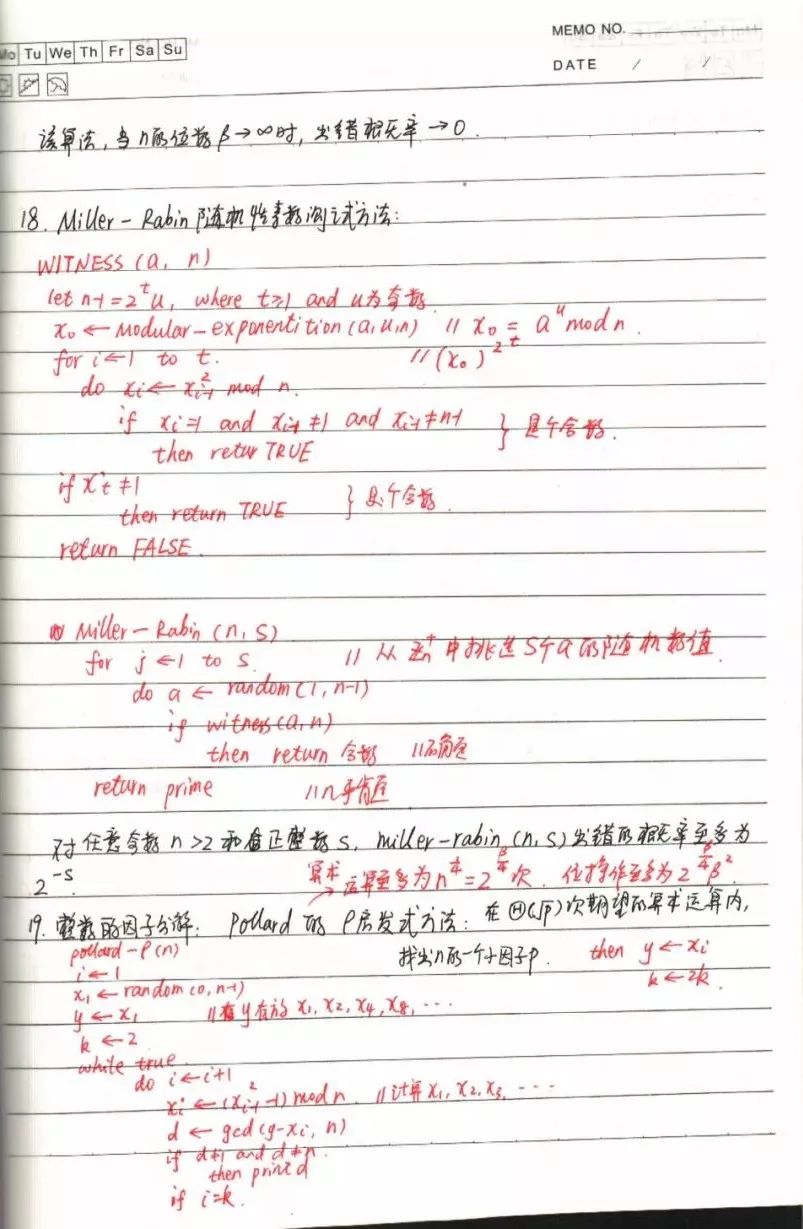 MEMO NO.
Mo Tu We Th Fr Sa Su
DATE / /
该算法,当n的位数β→∞时,出错概率→0.
18. Miller-Rabin随机性素数测试方法:
WITNESS (a, n)
let n-1=2^t u, where t≥1 and u为奇数
x₀ ← Modular-exponentition(a,u,n) // x₀ = a^u mod n.
for i←1 to t. // (x₀)^2^t
do xᵢ← x²ᵢ₋₁ mod n.
if xᵢ=1 and xᵢ₋₁≠1 and xᵢ₋₁≠n-1 } 是个合数.
then retur TRUE
if xₜ≠1
then return TRUE } 是个合数.
return FALSE.
Miller-Rabin (n, S)
for j ←1 to s. // 从Zₙ⁺中挑选S个a的随机数值
do a ← random(1, n-1)
if witness(a,n)
then return 合数 //确定
return prime //几乎肯定
对任意奇数 n>2 和正整数 s, miller-rabin (n,s)出错的概率至多为
2^-s. 算术运算至多为n^¼=2^(β/4)次. 位操作至多为2^(β/4)β².
19. 整数的因子分解: Pollard的ρ启发式方法: 在Θ(√p)次期望的算术运算内,
找出n的一个小因子p.
pollard-ρ(n)
i←1
x₁←random(0,n-1)
y←x₁ //y存放 x₁,x₂,x₄,x₈,···
k←2
while true
do i←i+1
xᵢ←(x²ᵢ₋₁-1)mod n. //计算x₁,x₂,x₃,···
d ← gcd(y-xᵢ, n)
if d≠1 and d≠n.
then print d
if i=k.
then y←xᵢ
k←2k.